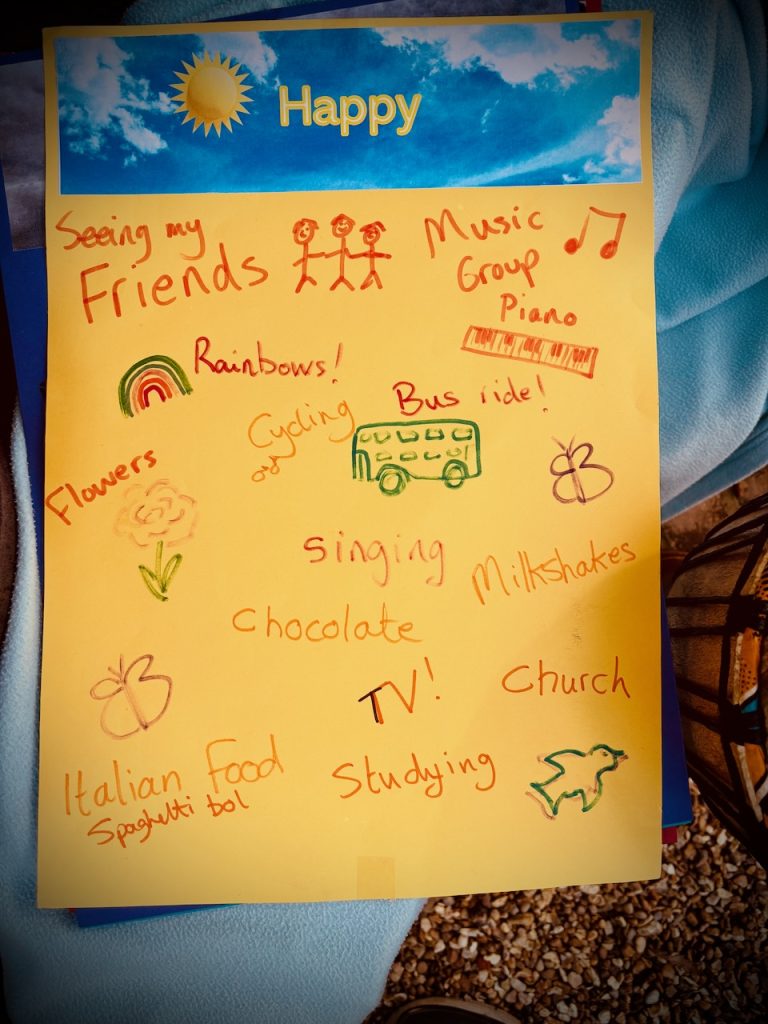 Happy
Seeing my
Friends
Music
Group
Piano
Rainbows!
Bus ride!
Cycling
Flowers
Singing
Milkshakes
Chocolate
TV!
Church
Italian Food
Spaghetti bol
Studying